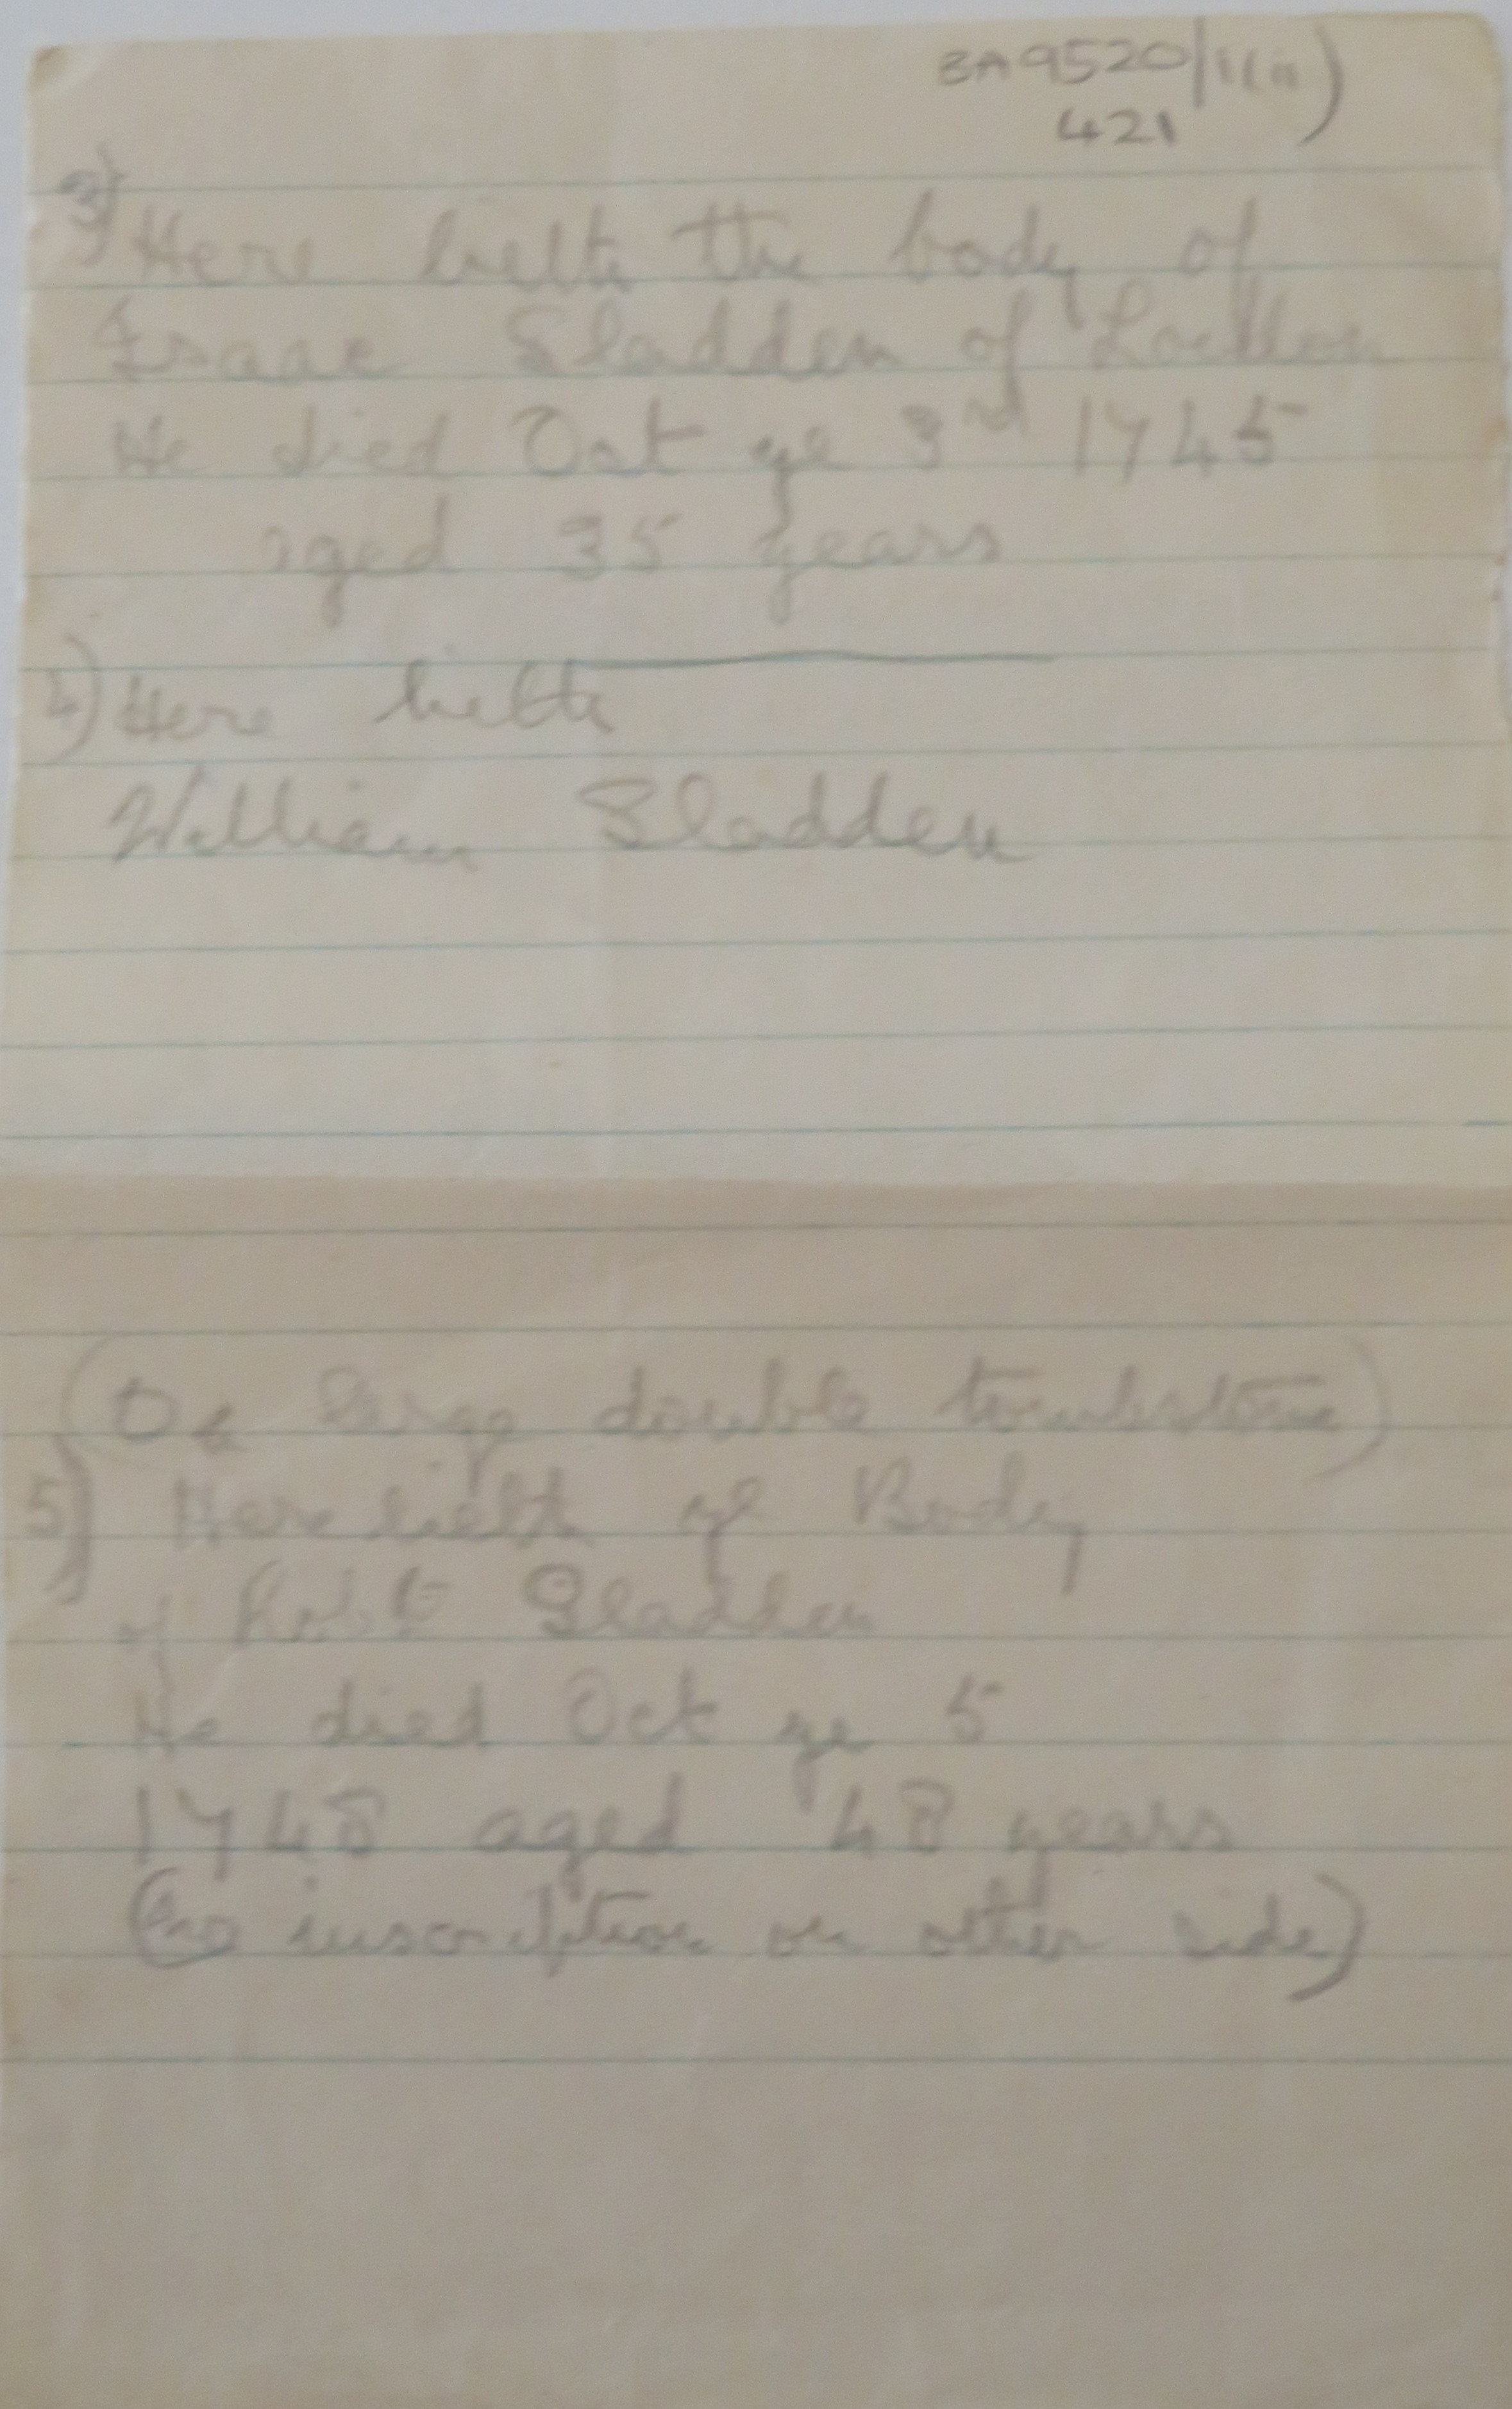 BA9520/1(ii)
421
3) Here lieth the body of
Isaac Sladden of
He died Oct ye 3rd 1745
aged 35 years
4) Here lieth
William Sladden
(On large double tombstone)
5) Here lieth ye Body
of Robt Sladden
He died Oct ye 5
1748 aged 48 years
(no inscription on other side)